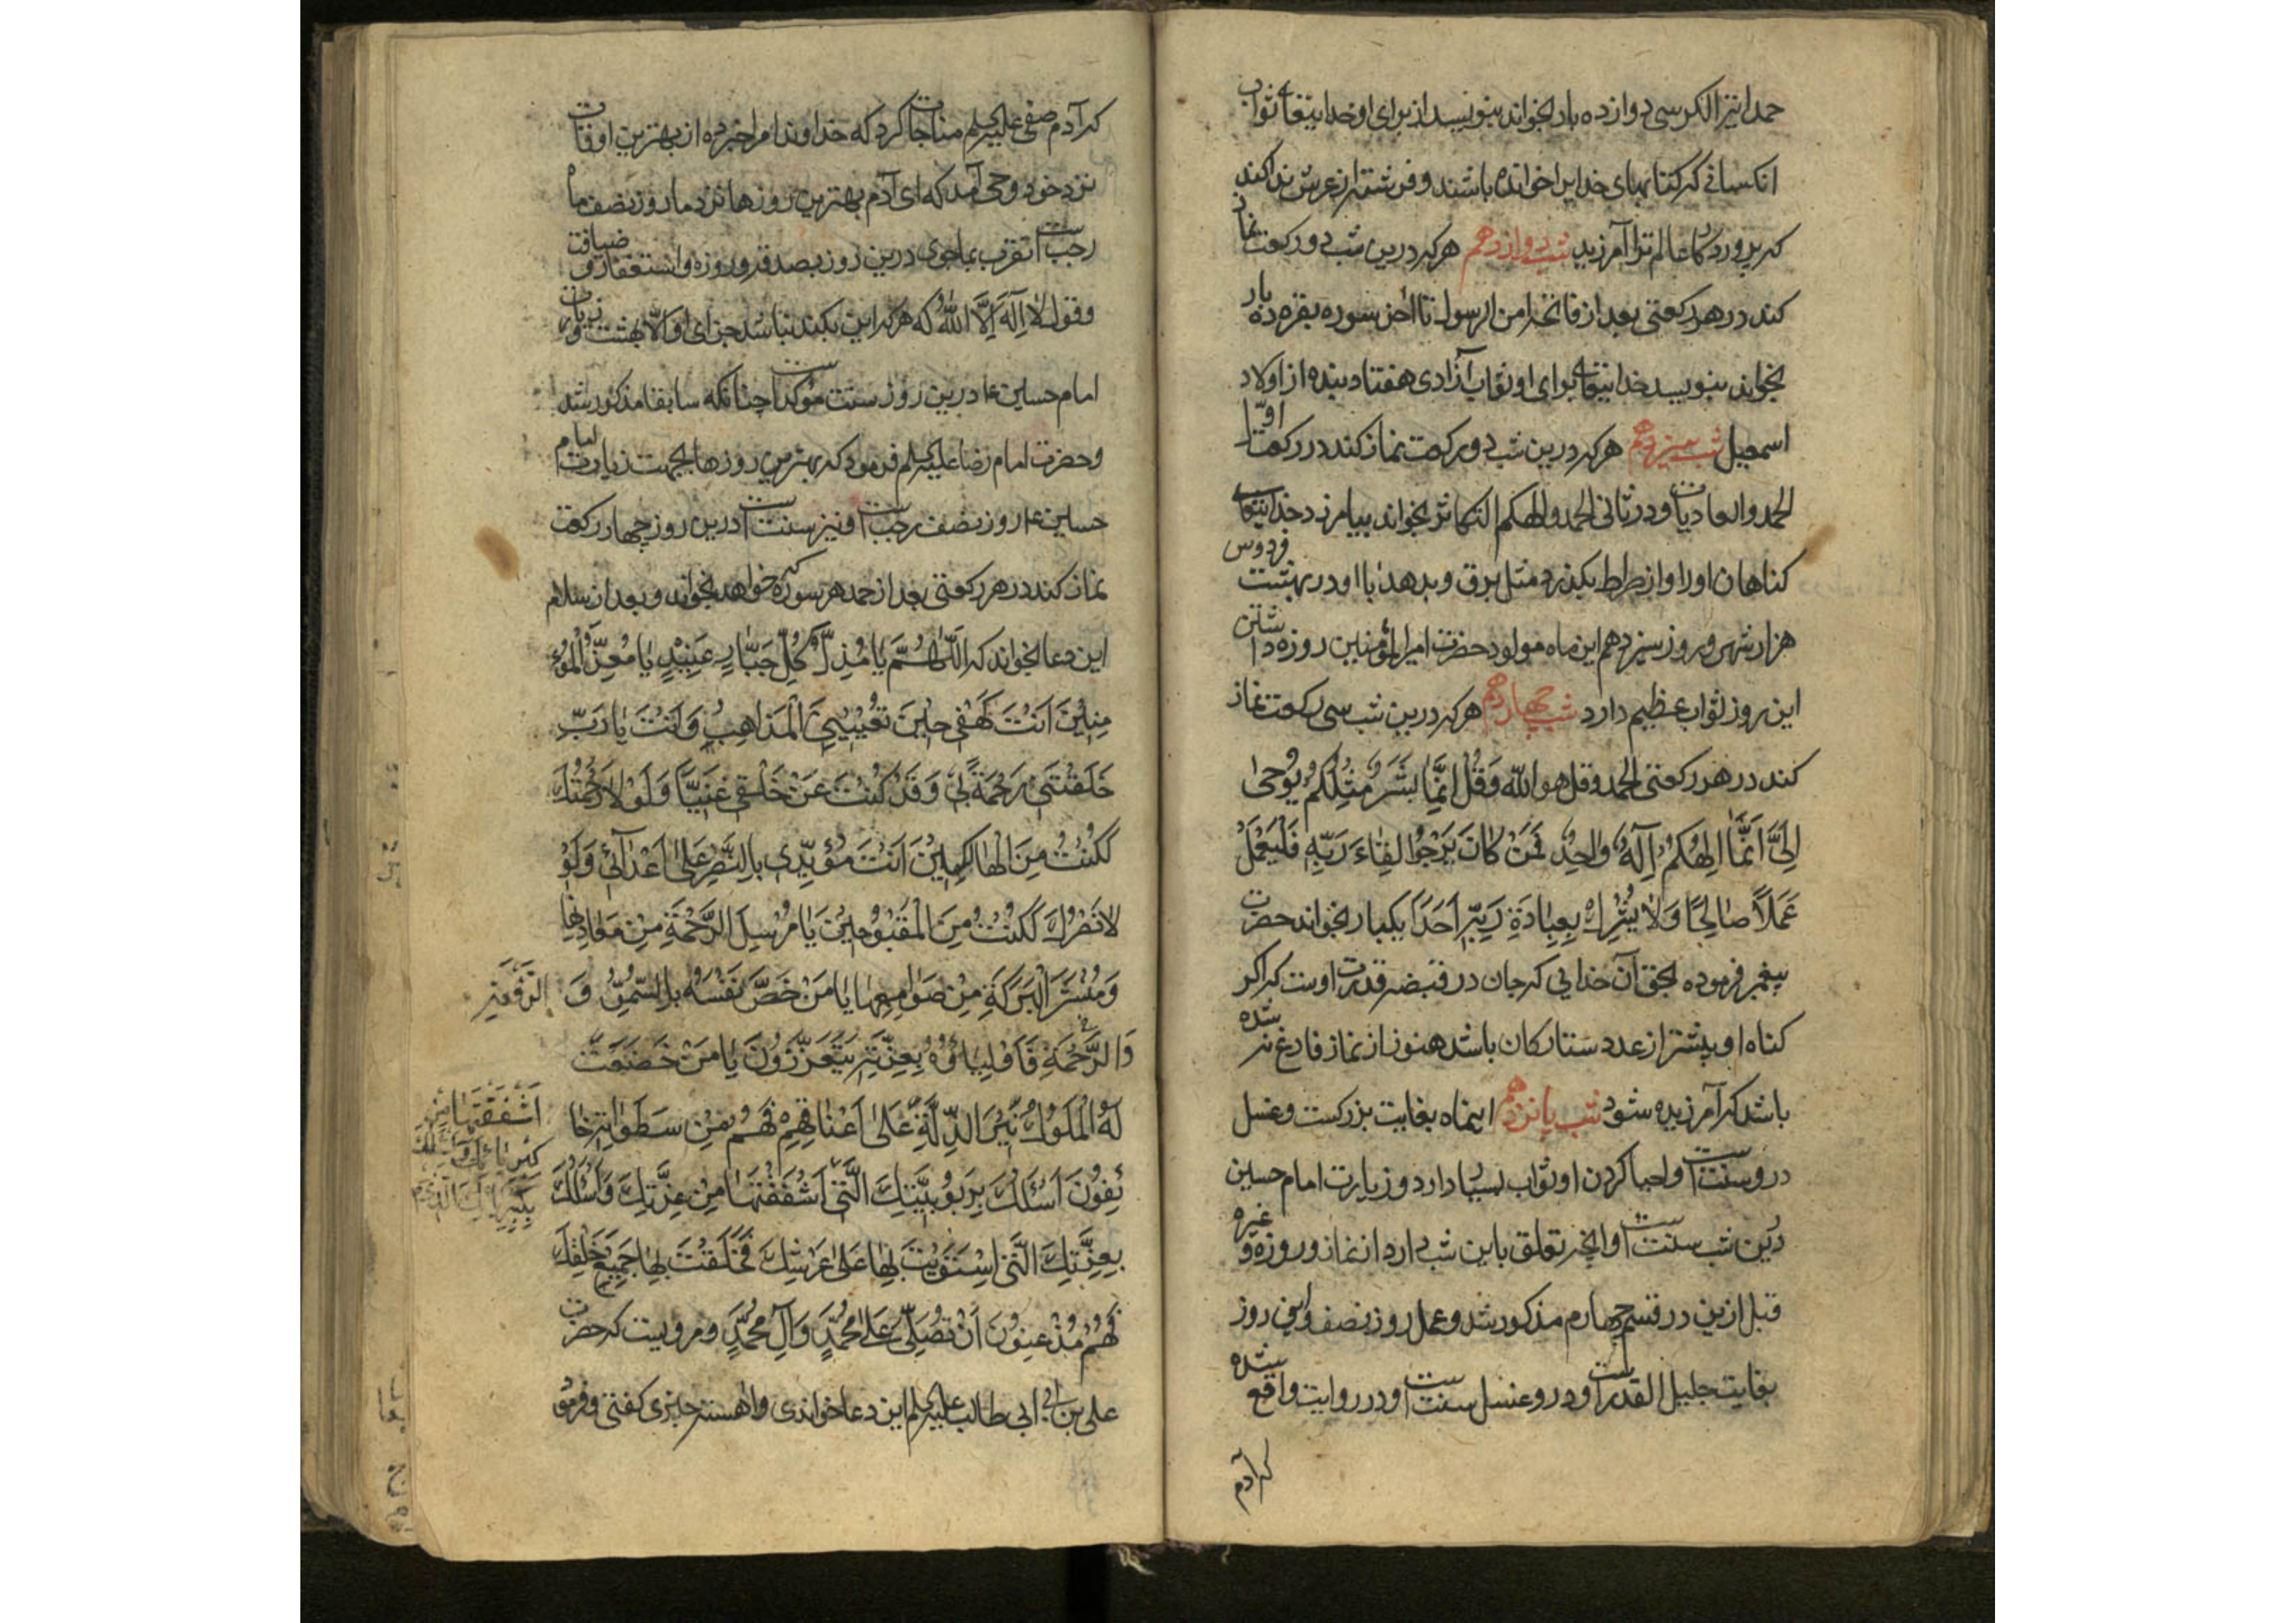 حمد ایتر الکرسی دوازده بار بخواند بنویسد از برای او خدایتعالی ثواب
انکسانی که کتابهای خدایرا خوانده باشند و فرشته از عرش ندا کند
که پروردکار عالم ترا آمرزید شب دوازدهم هر که درین شب دو رکعت نماز
کند در هر رکعتی بعد از فاتحه امن الرسول تا آخر سوره بقره ده بار
بخواند بنویسد خدایتعالی برای او ثواب آزادی هفتاد بنده از اولاد
اسمعیل شب سیزدهم هر که درین شب دو رکعت نماز کند در رکعت اوّل
الحمد والعادیات و در ثانی الحمد و الهکم التکاثر بخواند بیامرزد خدایتعالی
کناهان او را و از صراط بکذرد مثل برق و بدهد با او در بهشت فردوس
هزار شهر و روز سیزدهم این ماه مولود حضرت امیرالمؤمنین روزه داشتن
این روز ثواب عظیم دارد شب چهاردهم هر که درین شب سی رکعت نماز
کند در هر رکعتی الحمد و قل هو الله وَقُلْ اِنَّمَا بَشَرٌ مِثْلُكُمْ يُوحىٰ
اِلَىَّ اَنَّمَا اِلٰهُكُمْ اِلٰهٌ وٰاحِدٌ فَمَنْ كَانَ يَرْجُوا لِقَاءَ رَبِّهِ فَلْيَعْمَلْ
عَمَلاً صٰالِحًا وَلاٰ يُشْرِكْ بِعِبٰادَةِ رَبِّهِ اَحَدًا یکبار بخواند حضرت
پیغمبر فرموده بحق آن خدایی که جان در قبضه قدرت اوست که اکر
کناه او بیشتر از عدد ستارکان باشد هنوز از نماز فارغ نشده
باشد که آمرزیده شود شب پانزدهم اینماه بغایت بزرکست و غسل
درو سنتست و احیا کردن او ثواب بسیار دارد و زیارت امام حسین
درین شب سنتست و آنچه تعلق باین شب دارد از نماز و روزه و غیره
قبل ازین در قسم چهارم مذکور شد و عمل روز نصف و این روز
بغایت جلیل القدرست و درو غسل سنتست و در روایت واقع شده
که آدم
که آدم صفی علیه السلم مناجات کرد که خداوندا مرا خبر ده از بهترین اوقات
نزد خود وحی آمد که ای آدم بهترین روزها نزد ما روز نصف ماه
رجبست تقرب بما جوی درین روز بصدقه و روزه و استغفار و ضیافت
و قول لاٰ اِلٰهَ اِلاَّ اللّٰهُ که هر که این بکند نباشد جزای او الاّ بهشت و زیارت
امام حسین ع درین روز سنت موکدست چنانکه سابقا مذکور شد
و حضرت امام رضا علیه السلم فرمود که بهترین روزها بجهت زیارت امام
حسین ع روز نصف رجبست و نیز سنتست درین روز چهار رکعت
نماز کند در هر رکعتی بعد از حمد هر سوره که خواهد بخواند و بعد از سلام
این دعا بخواند که اَللّٰهُمَّ يٰا مُذِلَّ كُلِّ جَبّٰارٍ عَنِيْدٍ يٰا مُعِزَّ الْمُؤْ
مِنِيْنَ اَنْتَ كَهْفِى حِيْنَ تُعْيِيْنِى الْمَذَاهِبُ وَاَنْتَ يٰا رَبِّ
خَلَقْتَنِى رَحْمَةً بِى وَقَدْ كُنْتَ عَنْ خَلْقِى غَنِيًّا وَلَوْلاٰ رَحْمَتُكَ
لَكُنْتُ مِنَ الْهٰالِكِيْنَ اَنْتَ مُؤَيِّدِى بِالنَّصْرِ عَلىٰ اَعْدٰائِى وَلَوْ
لاٰ نَصْرُكَ لَكُنْتُ مِنَ الْمَقْبُوْحِيْنَ يٰا مُرْسِلَ الرَّحْمَةِ مِنْ مَعٰادِنِهٰا
وَمُنْشِرَ الْبَرَكَةِ مِنْ صَوٰامِعِهٰا يٰا مَنْ خَصَّ نَفْسَهُ بِالسُّمُوِّ وَ الرَّفْعَةِ
وَالرَّحْمَةِ فَاَوْلِيَاؤُهُ بِعِزَّتِهِ يَتَعَزَّزُوْنَ يٰا مَنْ خَضَعَتْ
لَهُ الْمُلُوْكُ نِيْرَ الذِّلَّةِ عَلىٰ اَعْنٰاقِهِمْ فَهُمْ مِنْ سَطَوٰاتِهِ خٰا
ئِفُوْنَ اَسْئَلُكَ بِرَبُوْبِيَّتِكَ الَّتِى اشْتَقَقْتَهٰا مِنْ عِزَّتِكَ وَاَسْئَلُكَ
بِعِزَّتِكَ الَّتِى اسْتَوَيْتَ بِهٰا عَلىٰ عَرْشِكَ فَخَلَقْتَ بِهٰا جَمِيْعَ خَلْقِكَ
فَهُمْ مُذْعِنُوْنَ اَنْ تُصَلِّىَ عَلىٰ مُحَمَّدٍ وَآلِ مُحَمَّدٍ و مرویست که حضرت
علی بن ابی طالب علیه السلم این دعا خواندی و آهسته چیزی کفتی و فرمو
اشْتَقَقْتَهٰا مِنْ
كِبْرِيٰائِكَ وَاَسْئَلُكَ
بِكِبْرِيٰائِكَ الَّتِى